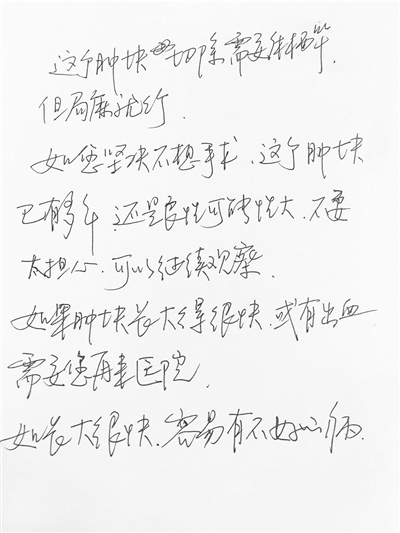 这个肿块切除需要住院,
但局麻就行.
如您坚决不想手术、这个肿块
已有多年 还是良性可能性大、不要
太担心、可以继续观察.
如果肿块长大得很快、或有出血
需要您再来医院.
如长大很快、容易有不好的病.